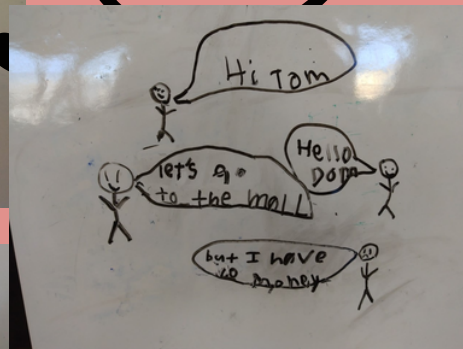 Hi Tom
Hello
let's go
to the mall
but I have
no money